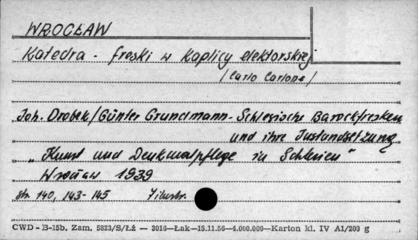 WROCŁAW
Katedra - freski w Kaplicy elektorskiej
/Carlo Carlone/
Joh. Drobek/Günter Grundmann - Schlesische Barockfresken
und ihre Instandsetzung
„Kunst und Denkmalpflege in Schlesien"
Wrocław 1939
str. 140, 143-145 7 ilustr.
CWD - B-15b. Zam. 5823/S/Łź — 3016—Łak—15.11.56—4.000.000—Karton kl. IV A1/200 g